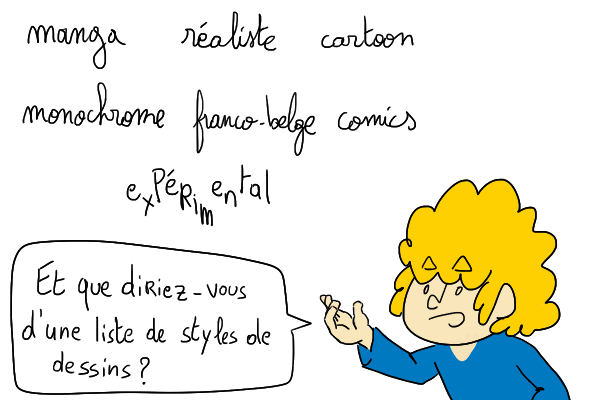 manga réaliste cartoon
monochrome franco-belge comics
exPéRimental
Et que diRiez-vous
d'une liste de styles de
dessins ?